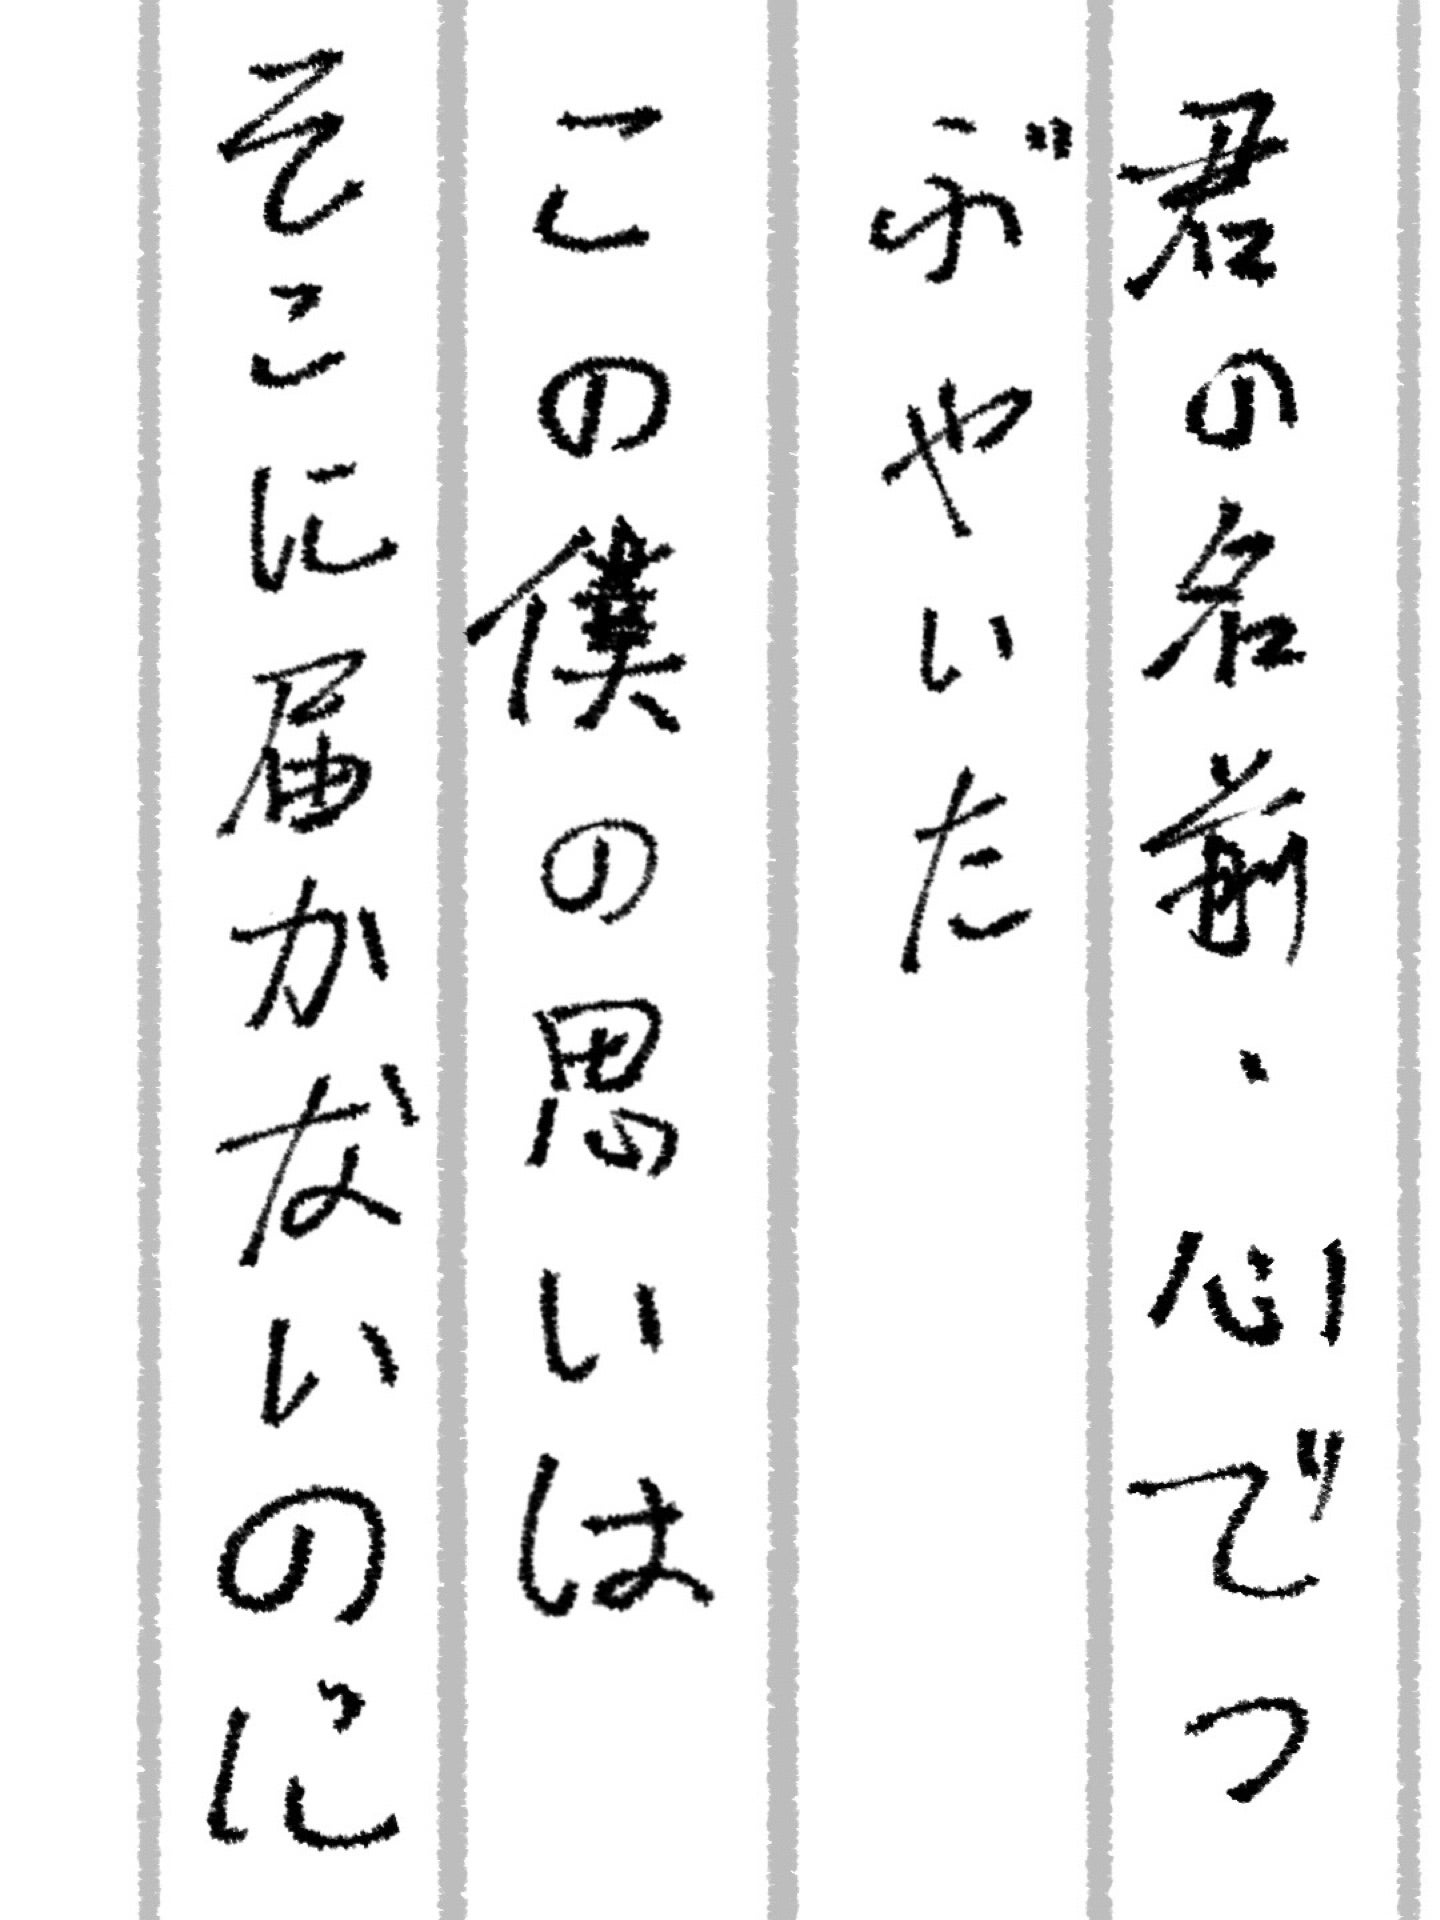 君の名前、心でつ
ぶやいた
この僕の思いは
そこに届かないのに